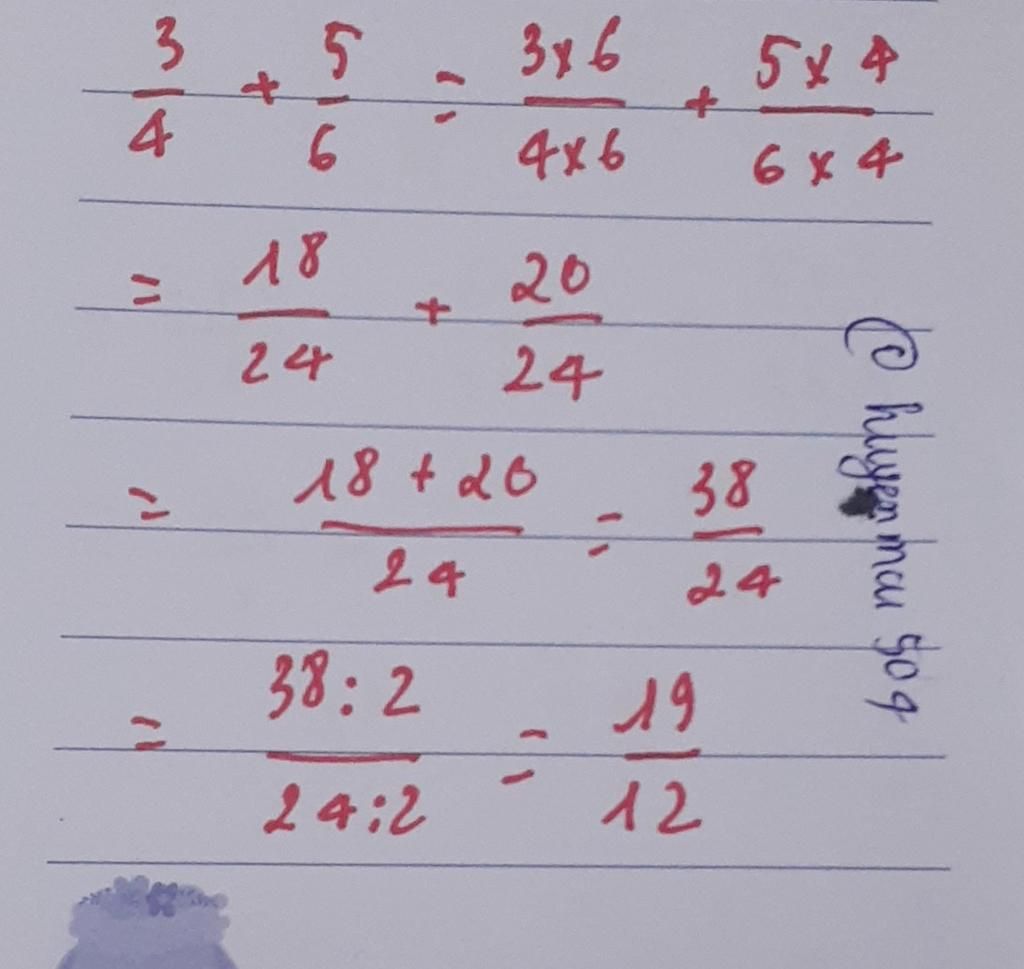 3/4 + 5/6 = 3x6/4x6 + 5x4/6x4
= 18/24 + 20/24
= 18+20/24 = 38/24
= 38:2/24:2 = 19/12
@ huyenmau 50q